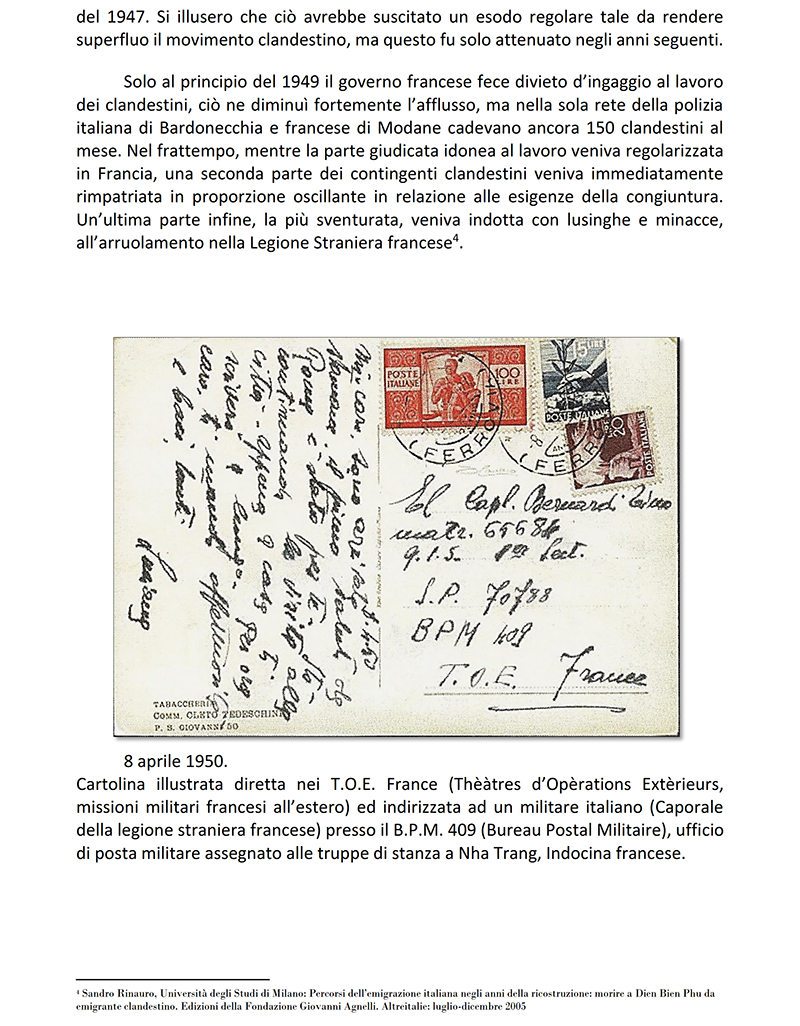 del 1947. Si illusero che ciò avrebbe suscitato un esodo regolare tale da rendere
superfluo il movimento clandestino, ma questo fu solo attenuato negli anni seguenti.
Solo al principio del 1949 il governo francese fece divieto d’ingaggio al lavoro
dei clandestini, ciò ne diminuì fortemente l’afflusso, ma nella sola rete della polizia
italiana di Bardonecchia e francese di Modane cadevano ancora 150 clandestini al
mese. Nel frattempo, mentre la parte giudicata idonea al lavoro veniva regolarizzata
in Francia, una seconda parte dei contingenti clandestini veniva immediatamente
rimpatriata in proporzione oscillante in relazione alle esigenze della congiuntura.
Un’ultima parte infine, la più sventurata, veniva indotta con lusinghe e minacce,
all’arruolamento nella Legione Straniera francese⁴.
Mio caro, sono arrivato
stamane, il primo saluto da
Roma è stato per te. Sto
continuando la visita alla
città. Appena a casa ti
scriverò a lungo. Per ora
caro, ti mando affettuosità
e baci tanti.
Luciano
POSTE
ITALIANE
100
LIRE
15 LIRE
POSTE ITALIANE
20
POSTE ITALIANE
FERROVIA
FERRO
Capl. Bernardi
matr. 65684
S.P. 70788
BPM 409
T.O.E. France
TABACCHERIA
COMM. CLETO TEDESCHINI
P. S. GIOVANNI 50
8 aprile 1950.
Cartolina illustrata diretta nei T.O.E. France (Thèàtres d’Opèrations Extèrieurs,
missioni militari francesi all’estero) ed indirizzata ad un militare italiano (Caporale
della legione straniera francese) presso il B.P.M. 409 (Bureau Postal Militaire), ufficio
di posta militare assegnato alle truppe di stanza a Nha Trang, Indocina francese.
⁴ Sandro Rinauro, Università degli Studi di Milano: Percorsi dell’emigrazione italiana negli anni della ricostruzione: morire a Dien Bien Phu da
emigrante clandestino. Edizioni della Fondazione Giovanni Agnelli. Altreitalie: luglio-dicembre 2005